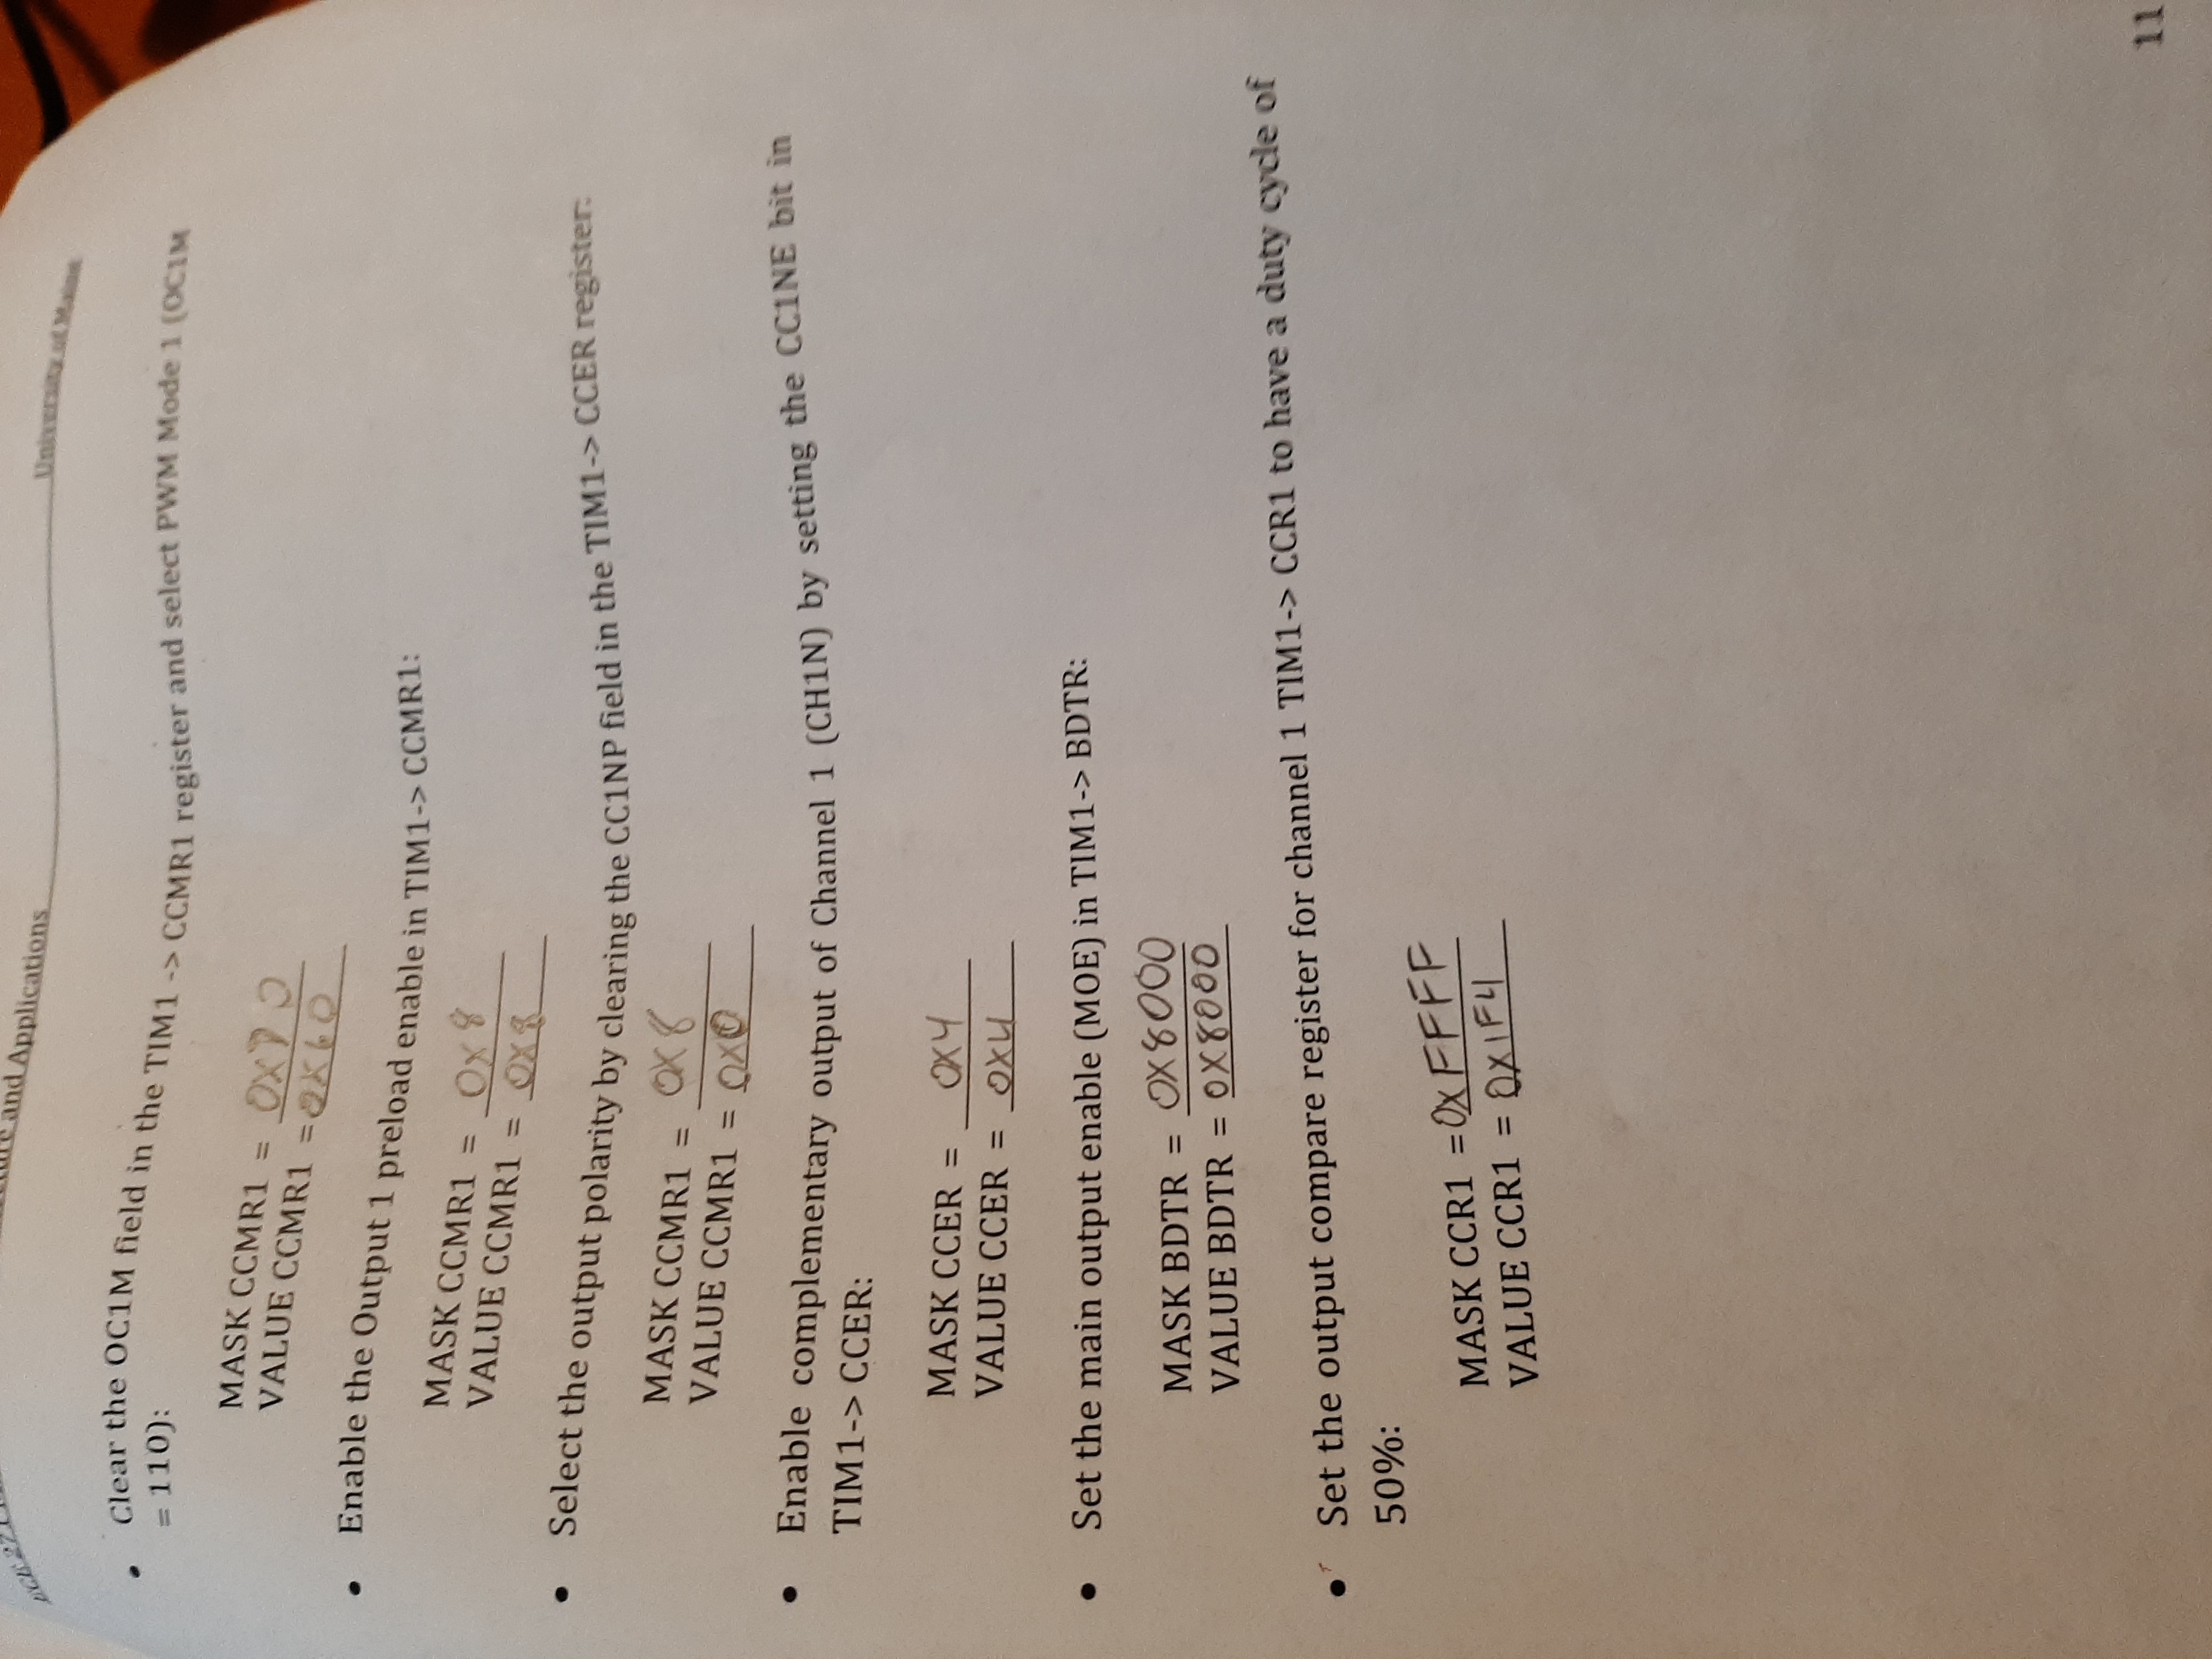 ECE 271
and Applications
University of Maine
• Clear the OC1M field in the TIM1 -> CCMR1 register and select PWM Mode 1 (OC1M
= 110):
MASK CCMR1 = 0X70
VALUE CCMR1 = 0X60
• Enable the Output 1 preload enable in TIM1-> CCMR1:
MASK CCMR1 = 0X8
VALUE CCMR1 = 0X8
• Select the output polarity by clearing the CC1NP field in the TIM1-> CCER register:
MASK CCMR1 = 0X8
VALUE CCMR1 = 0X0
• Enable complementary output of Channel 1 (CH1N) by setting the CC1NE bit in
TIM1-> CCER:
MASK CCER = 0X4
VALUE CCER = 0X4
• Set the main output enable (MOE) in TIM1-> BDTR:
MASK BDTR = 0X8000
VALUE BDTR = 0X8000
• Set the output compare register for channel 1 TIM1-> CCR1 to have a duty cycle of
50%:
MASK CCR1 = 0XFFFF
VALUE CCR1 = 0X1F4
11